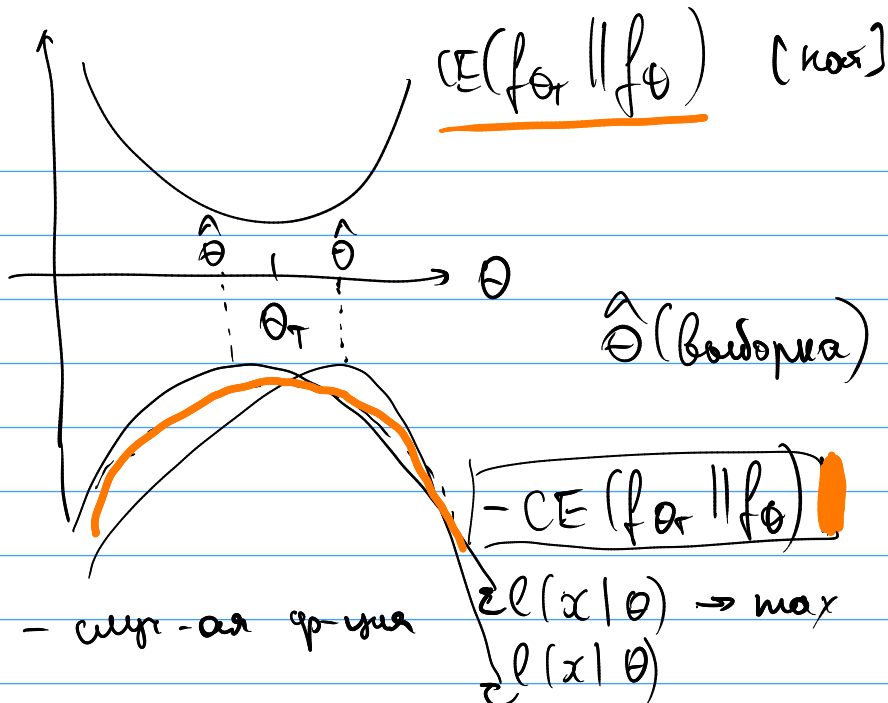 CE(f_θ_T || f_θ)
θ̂ θ̂
θ
θ_T
θ̂ (выборка)
- CE (f_θ_T || f_θ)
ℓ(x|θ) → max
- случ-ая ф-ция
ℓ(x|θ)